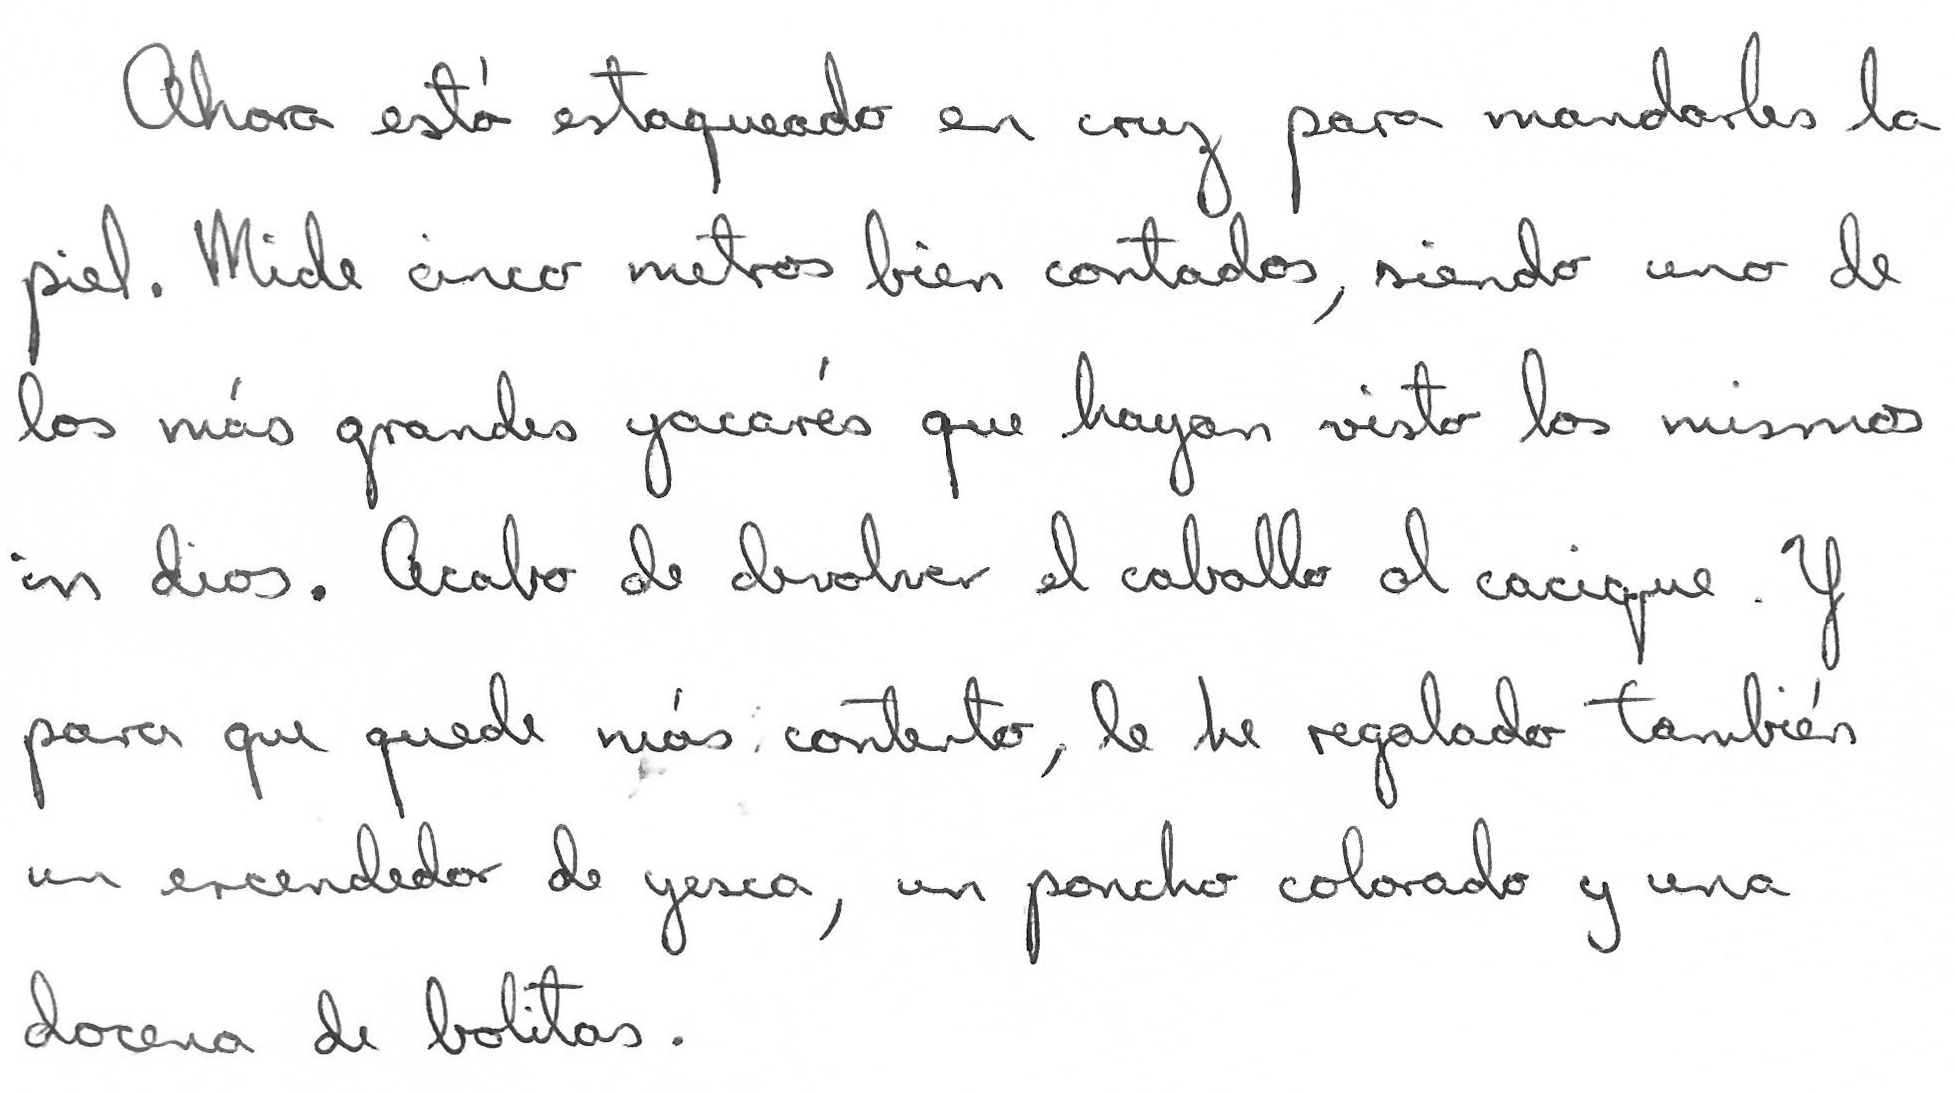 Ahora está estaqueado en cruz para mandarles la
piel. Mide cinco metros bien contados, siendo uno de
los más grandes yacarés que hayan visto los mismos
in dios. Acabo de devolver el caballo al cacique. Y
para que quede más contento, le he regalado también
un encendedor de yesca, un poncho colorado y una
docena de bolitas.